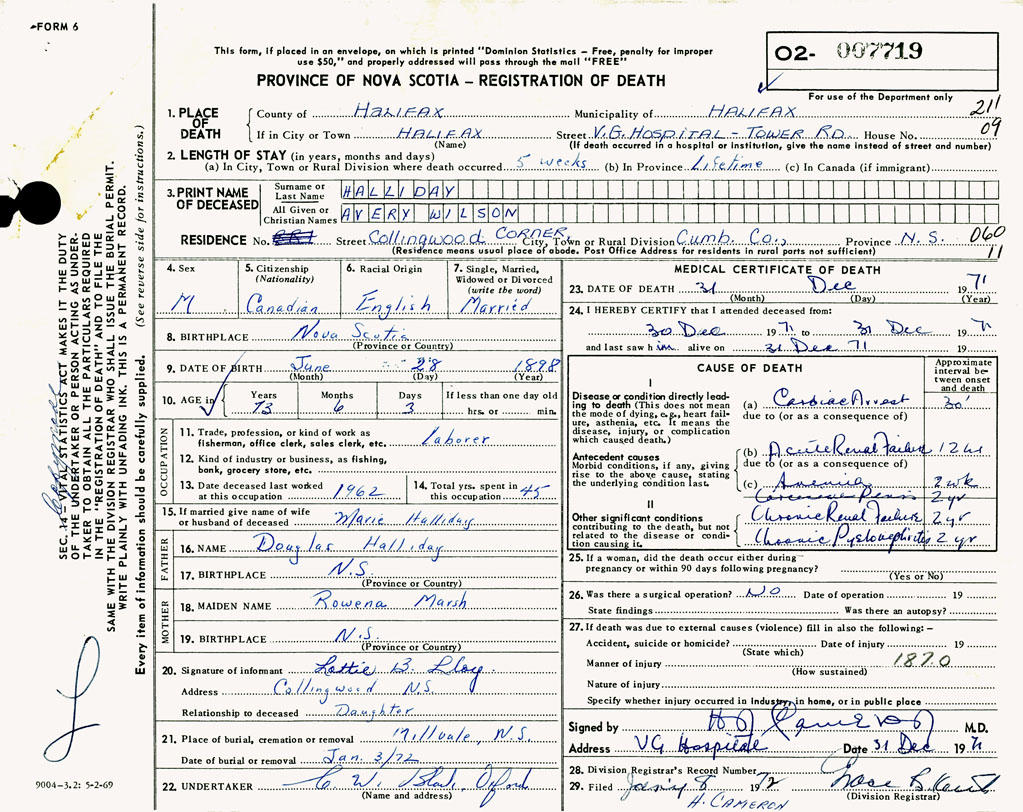 FORM 6
This form, if placed in an envelope, on which is printed "Dominion Statistics – Free, penalty for improper
use $50," and properly addressed will pass through the mail "FREE"
PROVINCE OF NOVA SCOTIA – REGISTRATION OF DEATH
O2- 007719
For use of the Department only
211
09
1. PLACE OF DEATH
County of HALIFAX Municipality of HALIFAX
If in City or Town HALIFAX Street V.G. HOSPITAL – TOWER RD. House No.
(Name) (If death occurred in a hospital or institution, give the name instead of street and number)
2. LENGTH OF STAY (in years, months and days)
(a) In City, Town or Rural Division where death occurred 5 weeks (b) In Province Lifetime (c) In Canada (if immigrant)
3. PRINT NAME OF DECEASED
Surname or Last Name HALLIDAY
All Given or Christian Names AVERY WILSON
RESIDENCE No. RR1 Street Collingwood CORNER, City, Town or Rural Division Cumb. Co., Province N.S. 060
11
(Residence means usual place of abode. Post Office Address for residents in rural parts not sufficient)
4. Sex
M.
5. Citizenship
(Nationality)
Canadian
6. Racial Origin
English
7. Single, Married,
Widowed or Divorced
(write the word)
Married
8. BIRTHPLACE Nova Scotia
(Province or Country)
9. DATE OF BIRTH June 28 1898
(Month) (Day) (Year)
10. AGE in
Years 73
Months 6
Days 3
If less than one day old
hrs. or min.
OCCUPATION
11. Trade, profession, or kind of work as
fisherman, office clerk, sales clerk, etc. Laborer
12. Kind of industry or business, as fishing,
bank, grocery store, etc.
13. Date deceased last worked
at this occupation 1962
14. Total yrs. spent in
this occupation 45
15. If married give name of wife
or husband of deceased Marie Halliday
FATHER
16. NAME Douglas Halliday
17. BIRTHPLACE N.S.
(Province or Country)
MOTHER
18. MAIDEN NAME Rowena Marsh
19. BIRTHPLACE N.S.
(Province or Country)
20. Signature of informant Lottie B.
Address Collingwood N.S.
Relationship to deceased Daughter
21. Place of burial, cremation or removal Millvale, N.S.
Date of burial or removal Jan. 3/72
22. UNDERTAKER C. W. Oxford
(Name and address)
MEDICAL CERTIFICATE OF DEATH
23. DATE OF DEATH 31 Dec 1971
(Month) (Day) (Year)
24. I HEREBY CERTIFY that I attended deceased from:
30 Dec 1971 to 31 Dec 1971
and last saw h im alive on 31 Dec 71 19
CAUSE OF DEATH
Approximate
interval be-
tween onset
and death
I
Disease or condition directly lead-
ing to death (This does not mean
the mode of dying, e.g., heart fail-
ure, asthenia, etc. It means the
disease, injury, or complication
which caused death.)
(a) Cardiac Arrest 30'
due to (or as a consequence of)
Antecedent causes
Morbid conditions, if any, giving
rise to the above cause, stating
the underlying condition last.
(b) Acute Renal Failure
due to (or as a consequence of)
(c) 2 wk
2 yr
II
Other significant conditions
contributing to the death, but not
related to the disease or condi-
tion causing it.
Chronic Renal Failure 2 yr
Chronic Pyelonephritis 2 yr
25. If a woman, did the death occur either during
pregnancy or within 90 days following pregnancy?
(Yes or No)
26. Was there a surgical operation? NO Date of operation 19
State findings Was there an autopsy?
27. If death was due to external causes (violence) fill in also the following: –
Accident, suicide or homicide? Date of injury 19
(State which)
Manner of injury 1870
(How sustained)
Nature of injury
Specify whether injury occurred in Industry, in home, or in public place
Signed by M.D.
Address VG Hospital Date 31 Dec 1971
28. Division Registrar's Record Number
29. Filed 1972
(Division Registrar)
H. CAMERON
SEC. 14 – VITAL STATISTICS ACT MAKES IT THE DUTY
OF THE UNDERTAKER OR PERSON ACTING AS UNDER-
TAKER TO OBTAIN ALL THE PARTICULARS REQUIRED
IN THE "REGISTRATION OF DEATH" AND TO FILE THE
SAME WITH THE DIVISION REGISTRAR WHO SHALL ISSUE THE BURIAL PERMIT.
WRITE PLAINLY WITH UNFADING INK. THIS IS A PERMANENT RECORD.
Every item of information should be carefully supplied. (See reverse side for instructions.)
9004-3.2: 5-2-69